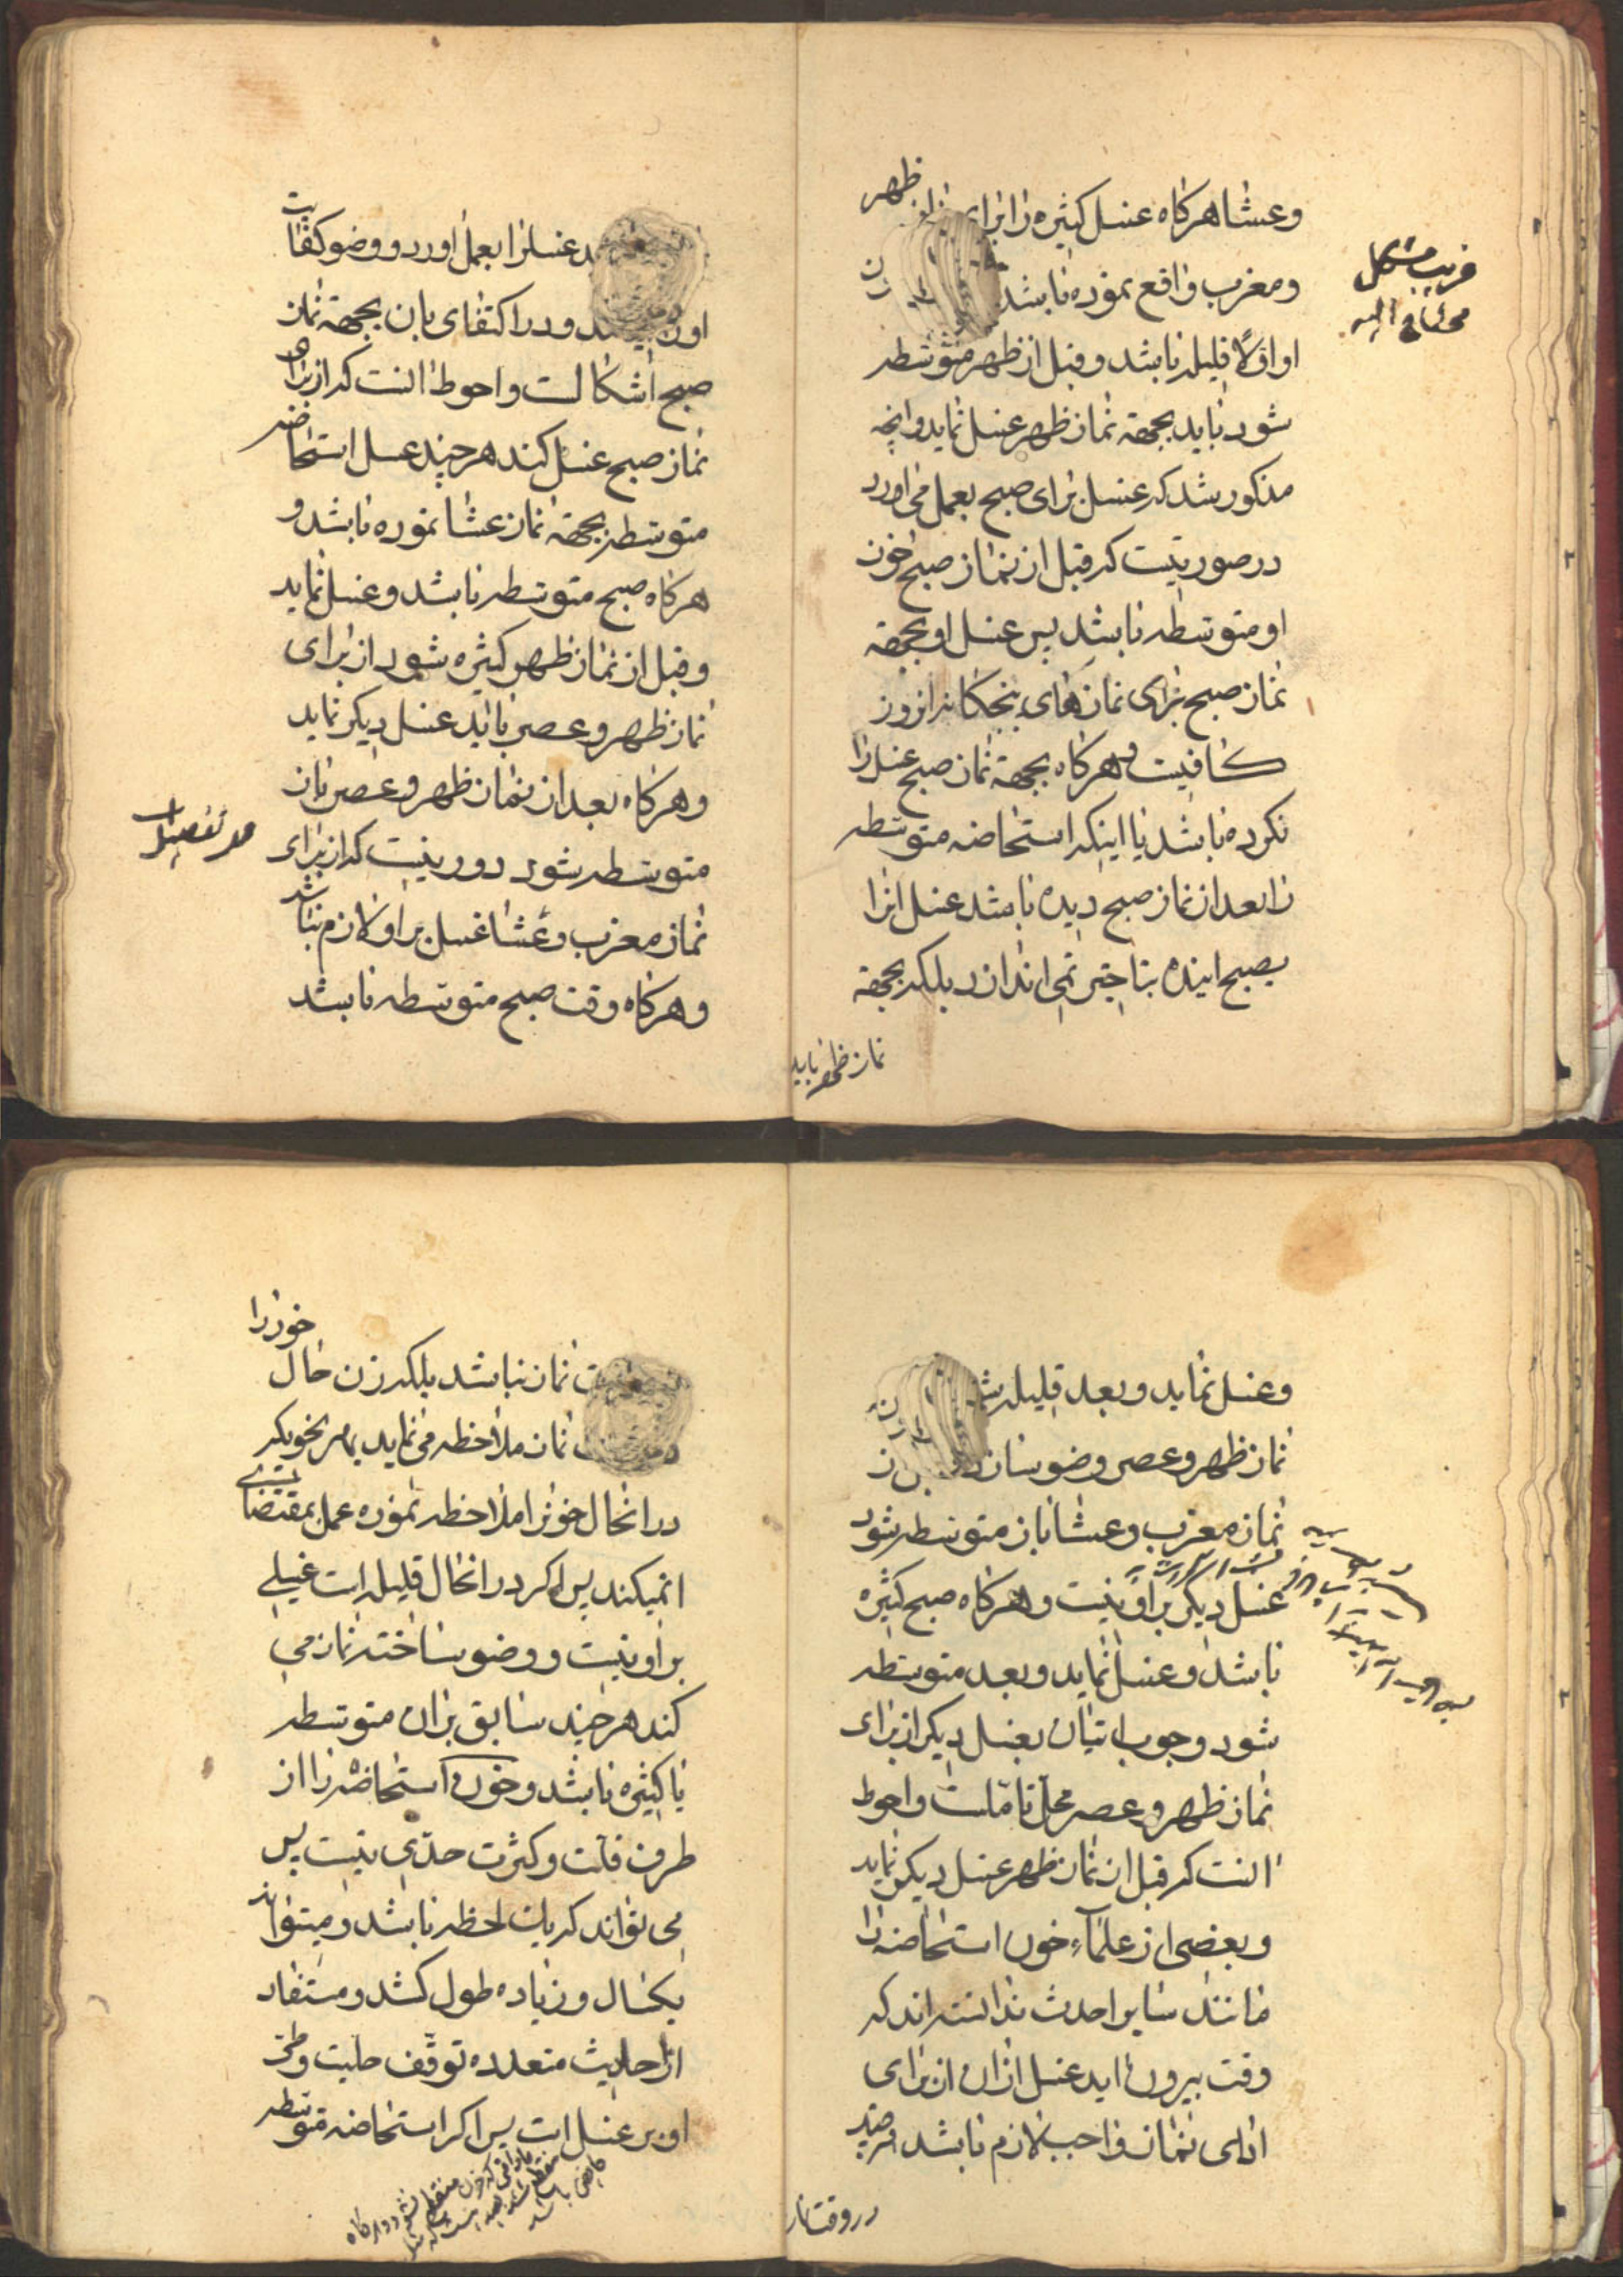 وعشا هرکاه غسل کثیره را برای نماز ظهر
ومغرب واقع نموده باشد
او اوّلا قلیله باشد وقبل از ظهر متوسطه
شود باید بجهة نماز ظهر غسل نماید وانچه
مذکور شد که غسل برای صبح بعمل می اورد
در صورتیست که قبل از نماز صبح خون
او متوسطه باشد پس غسل او بجهة
نماز صبح برای نمازهای پنجکانه انروز
کافیست وهرکاه بجهة نماز صبح غسل را
نکرده باشد یا اینکه استحاضه متوسطه
را بعد از نماز صبح دیده باشد غسل انرا
بصبح اینده بتاخیر نمی اندازد بلکه بجهة
نماز ظهر باید
غسلرا بعمل اورد و وضو کفایت
ودر اکتفای بان بجهة نماز
صبح اشکالست واحوط انست که از برای
نماز صبح غسل کند هرچند غسل استحاضه
متوسطه بجهة نماز عشا نموده باشد و
هرکاه صبح متوسطه باشد وغسل نماید
وقبل از نماز ظهر کثیره شود از برای
نماز ظهر وعصر باید غسل دیکر نماید
وهرکاه بعد از نماز ظهر وعصر بان
متوسطه شود دور نیست که از برای
نماز مغرب وعشا غسل بر او لازم نباشد
وهرکاه وقت صبح متوسطه باشد
وغسل نماید وبعد قلیله
نماز ظهر وعصر وضو سازد
نماز مغرب وعشا باز متوسطه شود
غسل دیکر بر او نیست وهرکاه صبح کثیره
باشد وغسل نماید وبعد متوسطه
شود وجوب اتیان بغسل دیکر از برای
نماز ظهر وعصر محل تاملست واحوط
انست که قبل از نماز ظهر غسل دیکر نماید
وبعضی از علماء خون استحاضه را
مانند سایر احدث ندانسته اند که
وقت بیرون اید غسل از ان از برای
ادای نماز واجب لازم باشد هرچند
در وقت نماز
نماز نباشد بلکه زن حال خود را
نماز ملاحظه می نماید بهر نحو که
در انحال خود را ملاحظه نموده عمل بمقتضای
ان میکند پس اکر در انحال قلیله است غسلی
بر او نیست و وضو ساخته نماز می
کند هرچند سابق بر ان متوسطه
یا کثیره باشد وخون استحاضه را از
طرف قلت وکثرت حدّی نیست پس
می تواند که یک لحظه باشد ومیتواند
یکسال وزیاده طول کشد ومستفاد
از احادیث متعدده توقّف حلیت وطی
او بر غسل است پس اکر استحاضه متوسطه